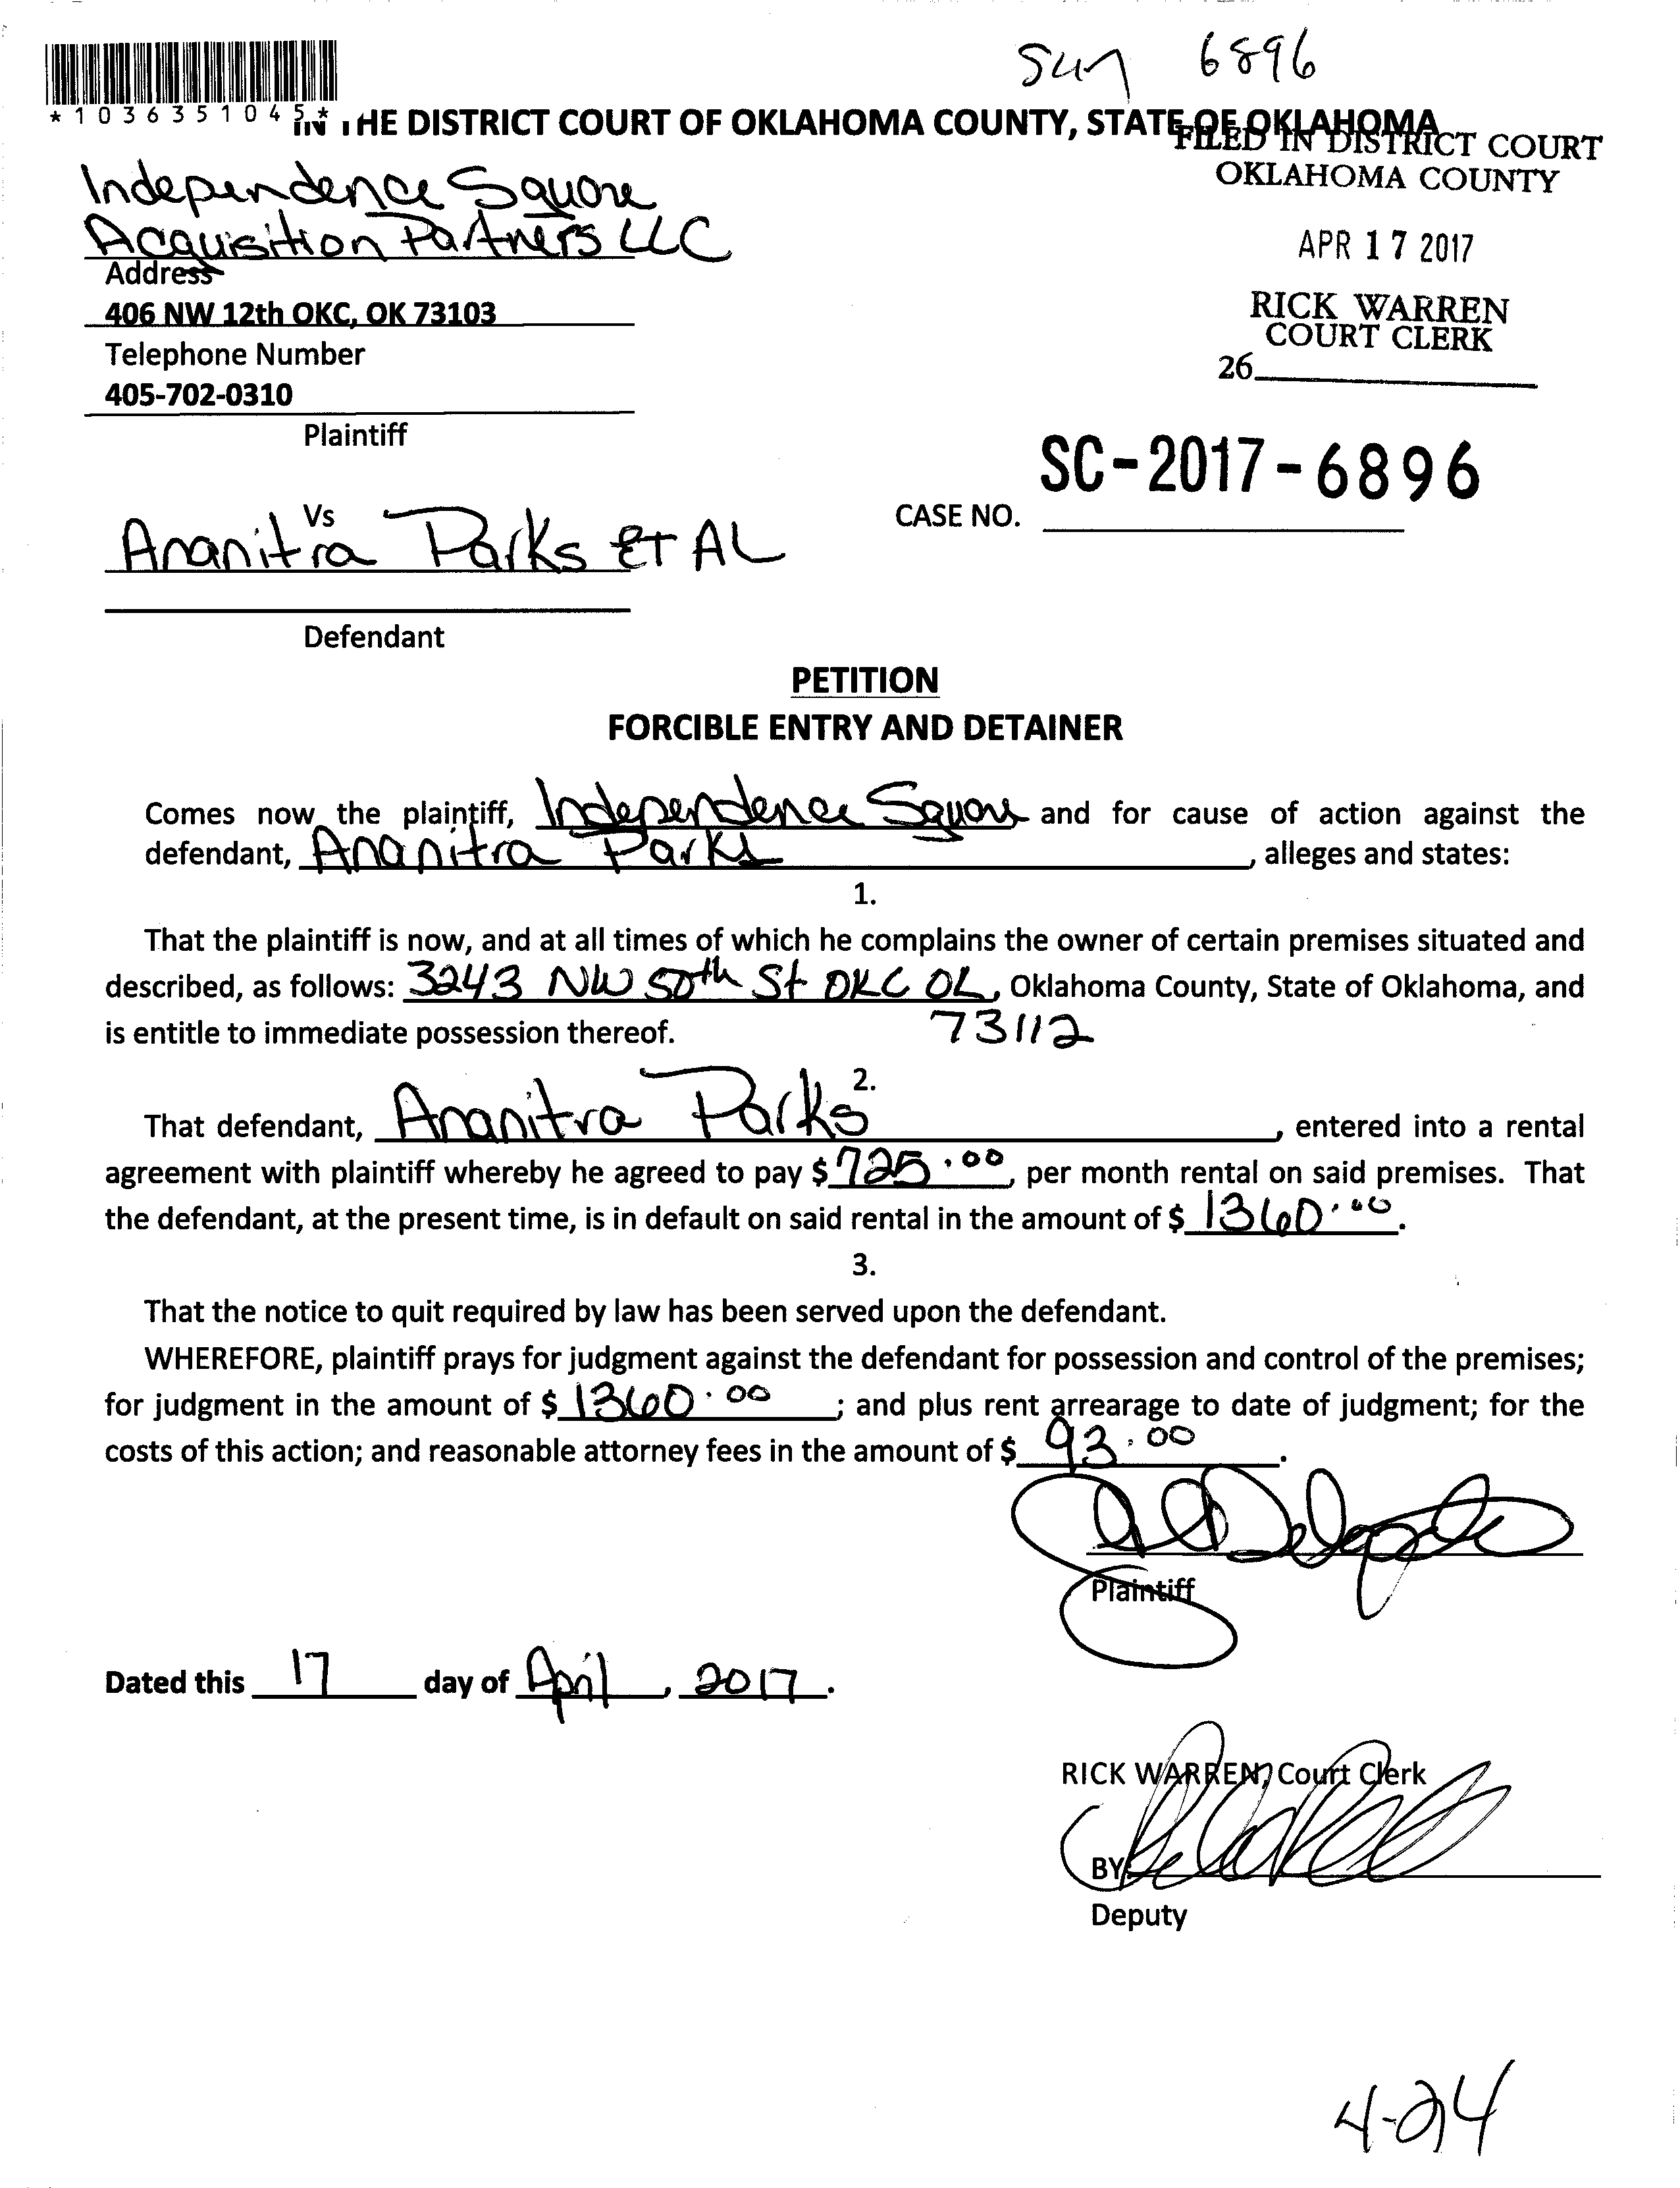 Sun 6896
*1036351045*
IN THE DISTRICT COURT OF OKLAHOMA COUNTY, STATE OF OKLAHOMA
FILED IN DISTRICT COURT
OKLAHOMA COUNTY
APR 17 2017
RICK WARREN
COURT CLERK
26
Independence Square
Acquisition Partners LLC
Address
406 NW 12th OKC, OK 73103
Telephone Number
405-702-0310
Plaintiff
SC-2017-6896
CASE NO.
Vs
Ananitra Parks ET AL
Defendant
PETITION
FORCIBLE ENTRY AND DETAINER
Comes now the plaintiff, Independence Square and for cause of action against the
defendant, Ananitra Parks, alleges and states:
1.
That the plaintiff is now, and at all times of which he complains the owner of certain premises situated and
described, as follows: 3243 NW 50th St OKC OK, Oklahoma County, State of Oklahoma, and
is entitle to immediate possession thereof. 73112
2.
That defendant, Ananitra Parks, entered into a rental
agreement with plaintiff whereby he agreed to pay $725.00, per month rental on said premises. That
the defendant, at the present time, is in default on said rental in the amount of $1360.00.
3.
That the notice to quit required by law has been served upon the defendant.
WHEREFORE, plaintiff prays for judgment against the defendant for possession and control of the premises;
for judgment in the amount of $1360.00; and plus rent arrearage to date of judgment; for the
costs of this action; and reasonable attorney fees in the amount of $93.00.
Plaintiff
Dated this 17 day of April, 2017.
RICK WARREN, Court Clerk
BY
Deputy
4-24